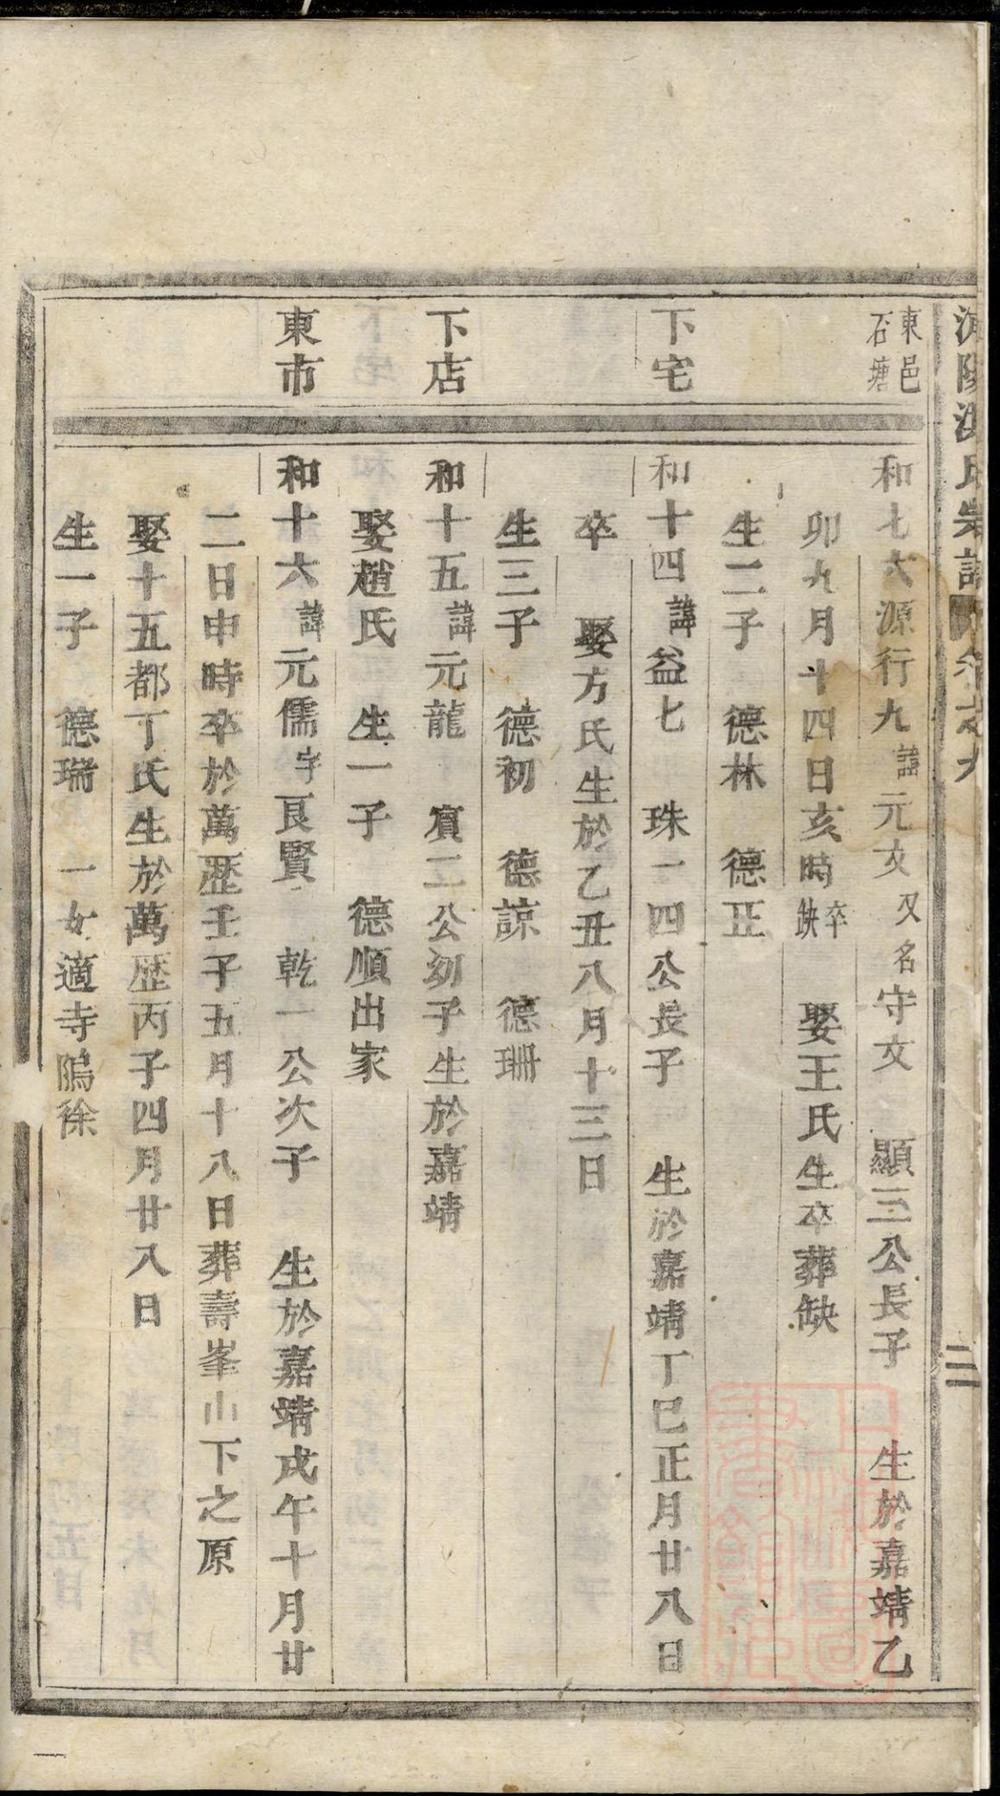 東邑
石塘
和七大源行九諱元文又名守文　顯三公長子　生於嘉靖乙
卯九月十四日亥時卒缺　娶王氏生卒葬缺
生二子　德林　德正
下宅
和十四諱益七　珠一四公長子　生於嘉靖丁巳正月廿八日
卒　娶方氏生於乙丑八月十三日
生三子　德初　德諒　德珊
下店
和十五諱元龍　賔二公幼子生於嘉靖
娶趙氏　生一子　德順出家
東市
和十六諱元儒字良賢　乾一公次子　生於嘉靖戊午十月廿
二日申時卒於萬歷壬子五月十八日葬壽峯山下之原
娶十五都丁氏生於萬歷丙子四月廿八日
生一子　德瑞　一女適寺隝徐